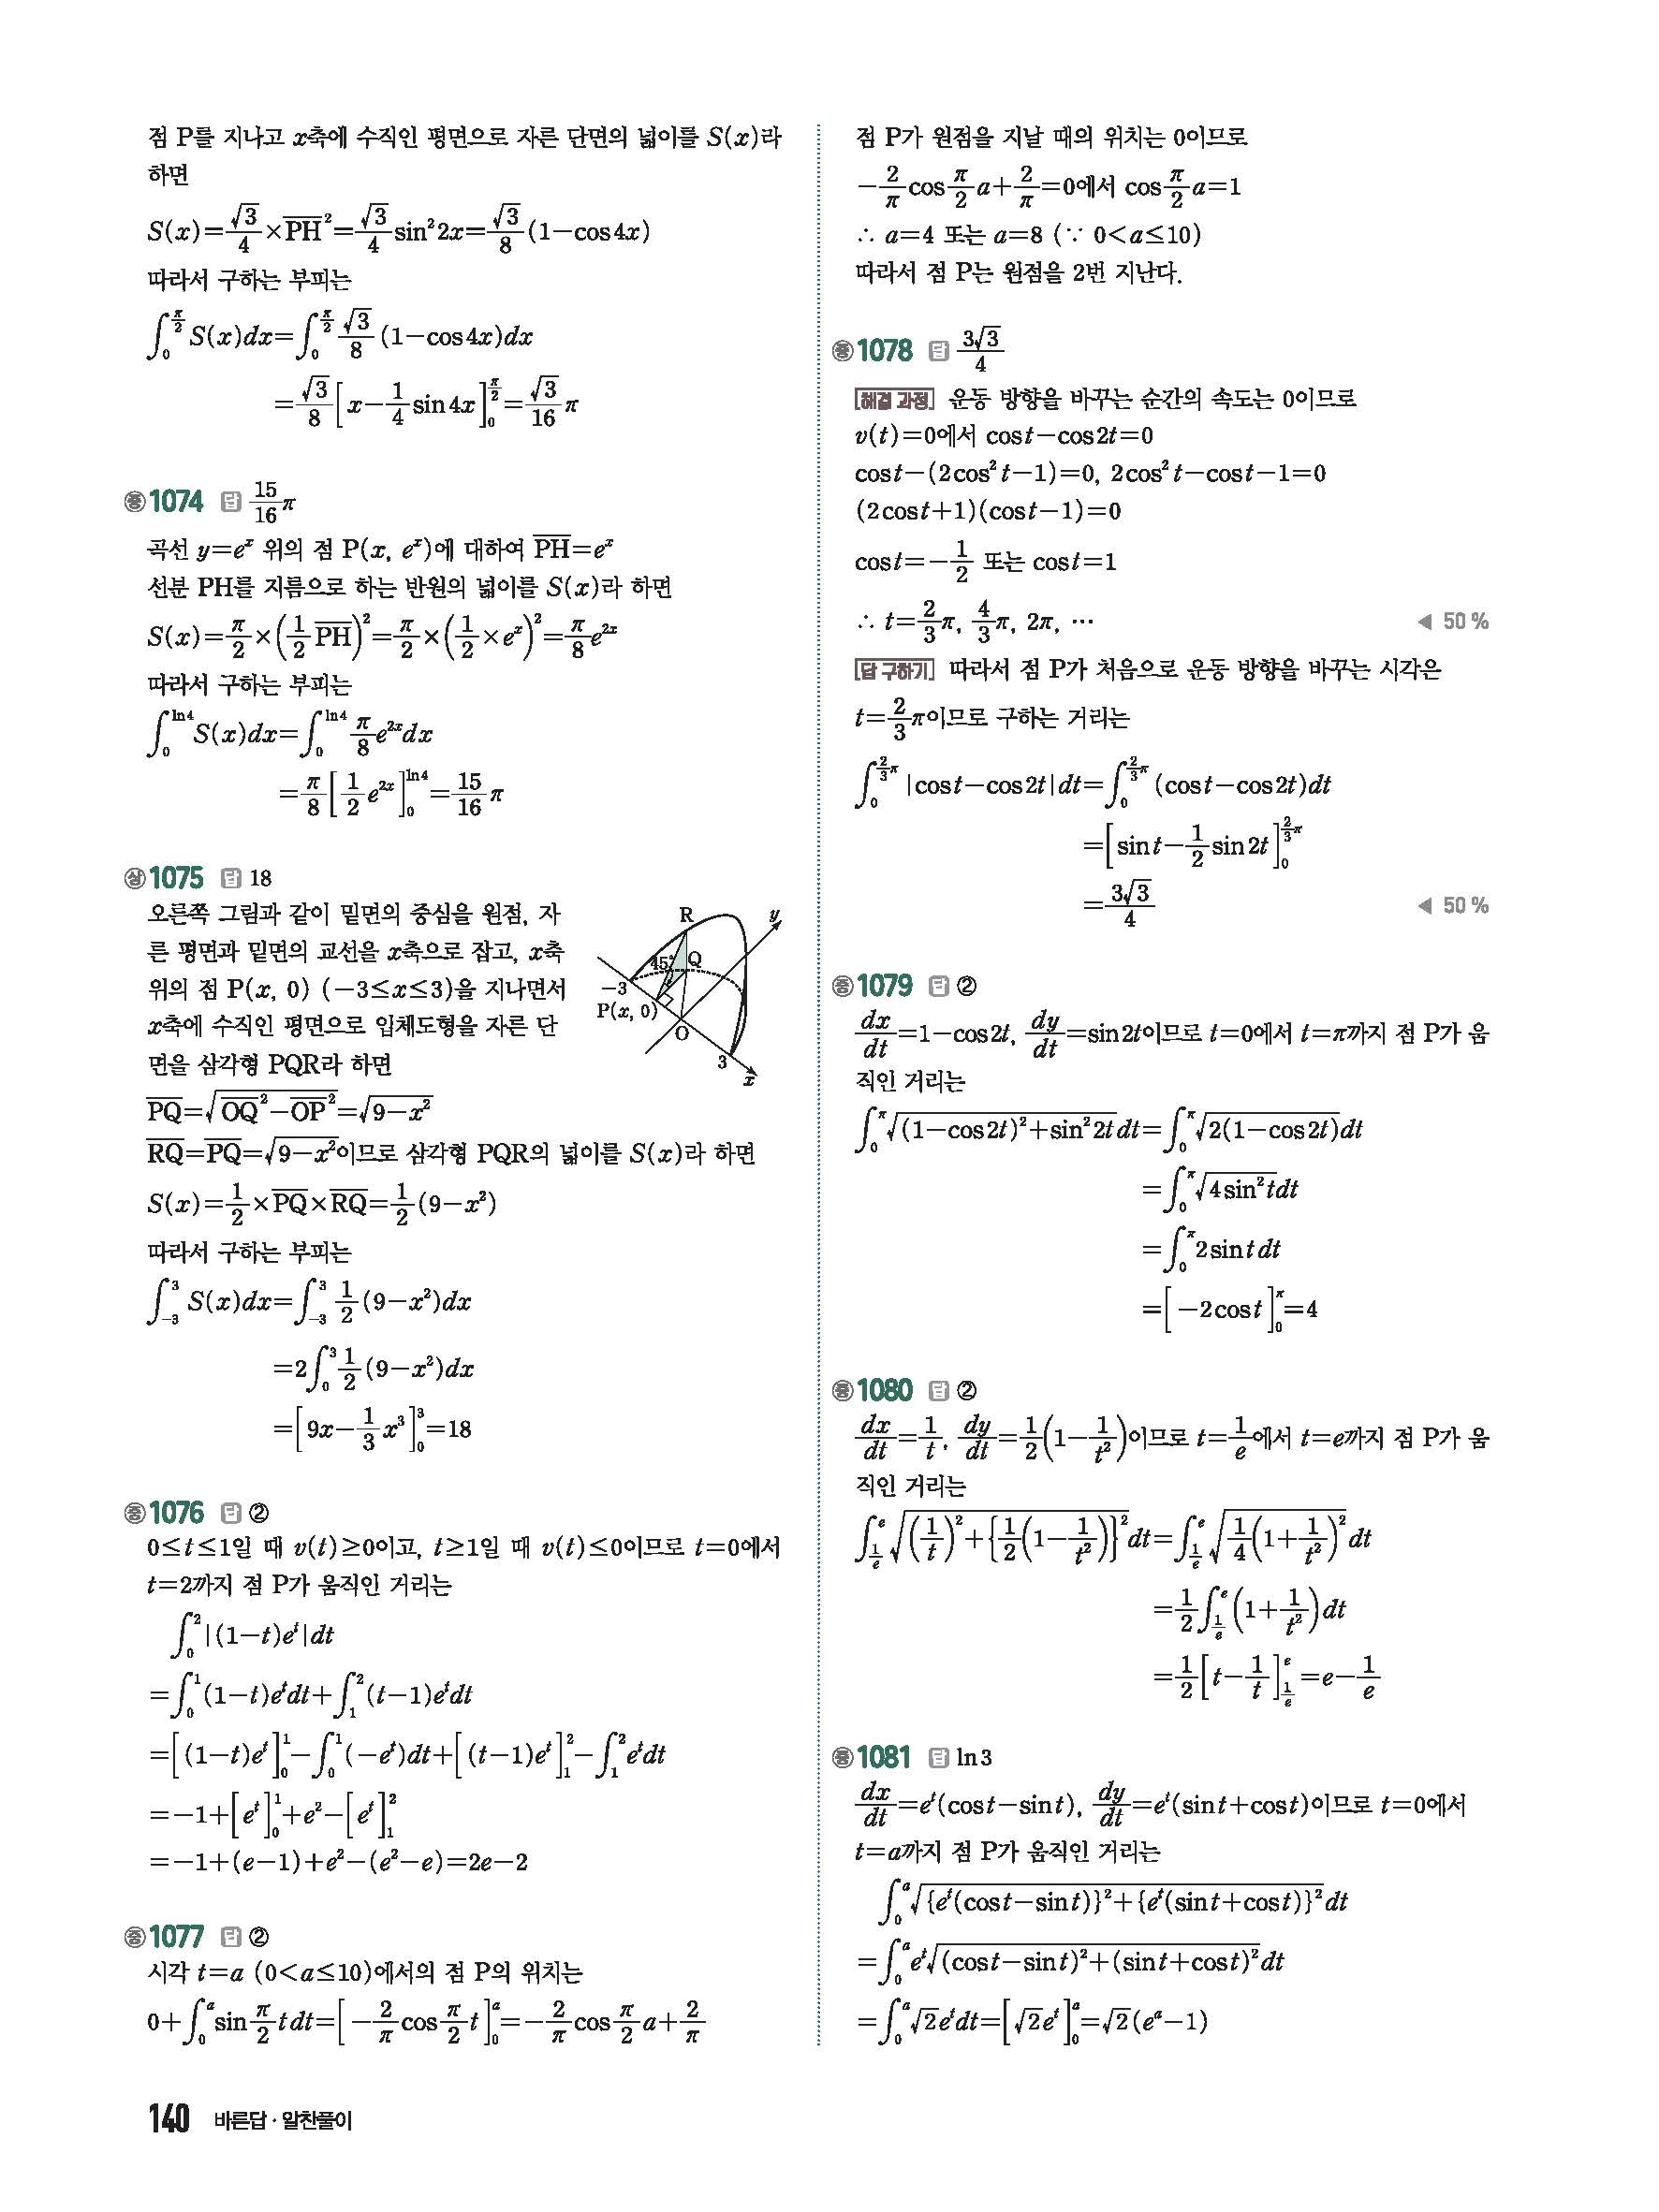 점 P를 지나고 x축에 수직인 평면으로 자른 단면의 넓이를 S(x)라
하면
S(x)=√3/4×PH²=√3/4 sin²2x=√3/8(1−cos4x)
따라서 구하는 부피는
∫₀^(π/2) S(x)dx=∫₀^(π/2) √3/8(1−cos4x)dx
=√3/8[x−1/4 sin4x]₀^(π/2)=√3/16 π
중 1074 답 15/16 π
곡선 y=eˣ 위의 점 P(x, eˣ)에 대하여 PH=eˣ
선분 PH를 지름으로 하는 반원의 넓이를 S(x)라 하면
S(x)=π/2×(1/2 PH)²=π/2×(1/2×eˣ)²=π/8 e²ˣ
따라서 구하는 부피는
∫₀^(ln4) S(x)dx=∫₀^(ln4) π/8 e²ˣdx
=π/8[1/2 e²ˣ]₀^(ln4)=15/16 π
상 1075 답 18
오른쪽 그림과 같이 밑면의 중심을 원점, 자
른 평면과 밑면의 교선을 x축으로 잡고, x축
위의 점 P(x, 0) (−3≤x≤3)을 지나면서
x축에 수직인 평면으로 입체도형을 자른 단
면을 삼각형 PQR라 하면
R
y
45°
Q
−3
P(x, 0)
O
3
x
PQ=√(OQ²−OP²)=√(9−x²)
RQ=PQ=√(9−x²)이므로 삼각형 PQR의 넓이를 S(x)라 하면
S(x)=1/2×PQ×RQ=1/2(9−x²)
따라서 구하는 부피는
∫₋₃³ S(x)dx=∫₋₃³ 1/2(9−x²)dx
=2∫₀³ 1/2(9−x²)dx
=[9x−1/3 x³]₀³=18
중 1076 답 ②
0≤t≤1일 때 v(t)≥0이고, t≥1일 때 v(t)≤0이므로 t=0에서
t=2까지 점 P가 움직인 거리는
∫₀²|(1−t)eᵗ|dt
=∫₀¹(1−t)eᵗdt+∫₁²(t−1)eᵗdt
=[(1−t)eᵗ]₀¹−∫₀¹(−eᵗ)dt+[(t−1)eᵗ]₁²−∫₁²eᵗdt
=−1+[eᵗ]₀¹+e²−[eᵗ]₁²
=−1+(e−1)+e²−(e²−e)=2e−2
중 1077 답 ②
시각 t=a (0<a≤10)에서의 점 P의 위치는
0+∫₀ᵃ sin π/2 t dt=[−2/π cos π/2 t]₀ᵃ=−2/π cos π/2 a+2/π
점 P가 원점을 지날 때의 위치는 0이므로
−2/π cos π/2 a+2/π=0에서 cos π/2 a=1
∴ a=4 또는 a=8 (∵ 0<a≤10)
따라서 점 P는 원점을 2번 지난다.
중 1078 답 3√3/4
해결 과정 운동 방향을 바꾸는 순간의 속도는 0이므로
v(t)=0에서 cost−cos2t=0
cost−(2cos²t−1)=0, 2cos²t−cost−1=0
(2cost+1)(cost−1)=0
cost=−1/2 또는 cost=1
∴ t=2/3 π, 4/3 π, 2π, ⋯ ◀ 50 %
답 구하기 따라서 점 P가 처음으로 운동 방향을 바꾸는 시각은
t=2/3 π이므로 구하는 거리는
∫₀^(2/3 π)|cost−cos2t|dt=∫₀^(2/3 π)(cost−cos2t)dt
=[sint−1/2 sin2t]₀^(2/3 π)
=3√3/4 ◀ 50 %
중 1079 답 ②
dx/dt=1−cos2t, dy/dt=sin2t이므로 t=0에서 t=π까지 점 P가 움
직인 거리는
∫₀^π √((1−cos2t)²+sin²2t)dt=∫₀^π √(2(1−cos2t))dt
=∫₀^π √(4sin²t)dt
=∫₀^π 2sint dt
=[−2cost]₀^π=4
중 1080 답 ②
dx/dt=1/t, dy/dt=1/2(1−1/t²)이므로 t=1/e에서 t=e까지 점 P가 움
직인 거리는
∫_(1/e)^e √((1/t)²+{1/2(1−1/t²)}²)dt=∫_(1/e)^e √(1/4(1+1/t²)²)dt
=1/2∫_(1/e)^e(1+1/t²)dt
=1/2[t−1/t]_(1/e)^e=e−1/e
중 1081 답 ln3
dx/dt=eᵗ(cost−sint), dy/dt=eᵗ(sint+cost)이므로 t=0에서
t=a까지 점 P가 움직인 거리는
∫₀ᵃ√({eᵗ(cost−sint)}²+{eᵗ(sint+cost)}²)dt
=∫₀ᵃeᵗ√((cost−sint)²+(sint+cost)²)dt
=∫₀ᵃ√2eᵗdt=[√2eᵗ]₀ᵃ=√2(eᵃ−1)
140 바른답 · 알찬풀이